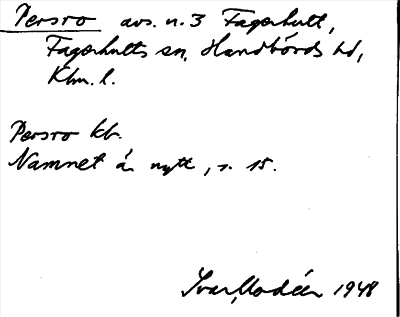 Persro avs. u. 3 Fagerhult,
Fagerhults sn, Handbörds hd,
Klm. l.
Persro kb.
Namnet är nytt, s. 15.
Ivar Modéer 1948